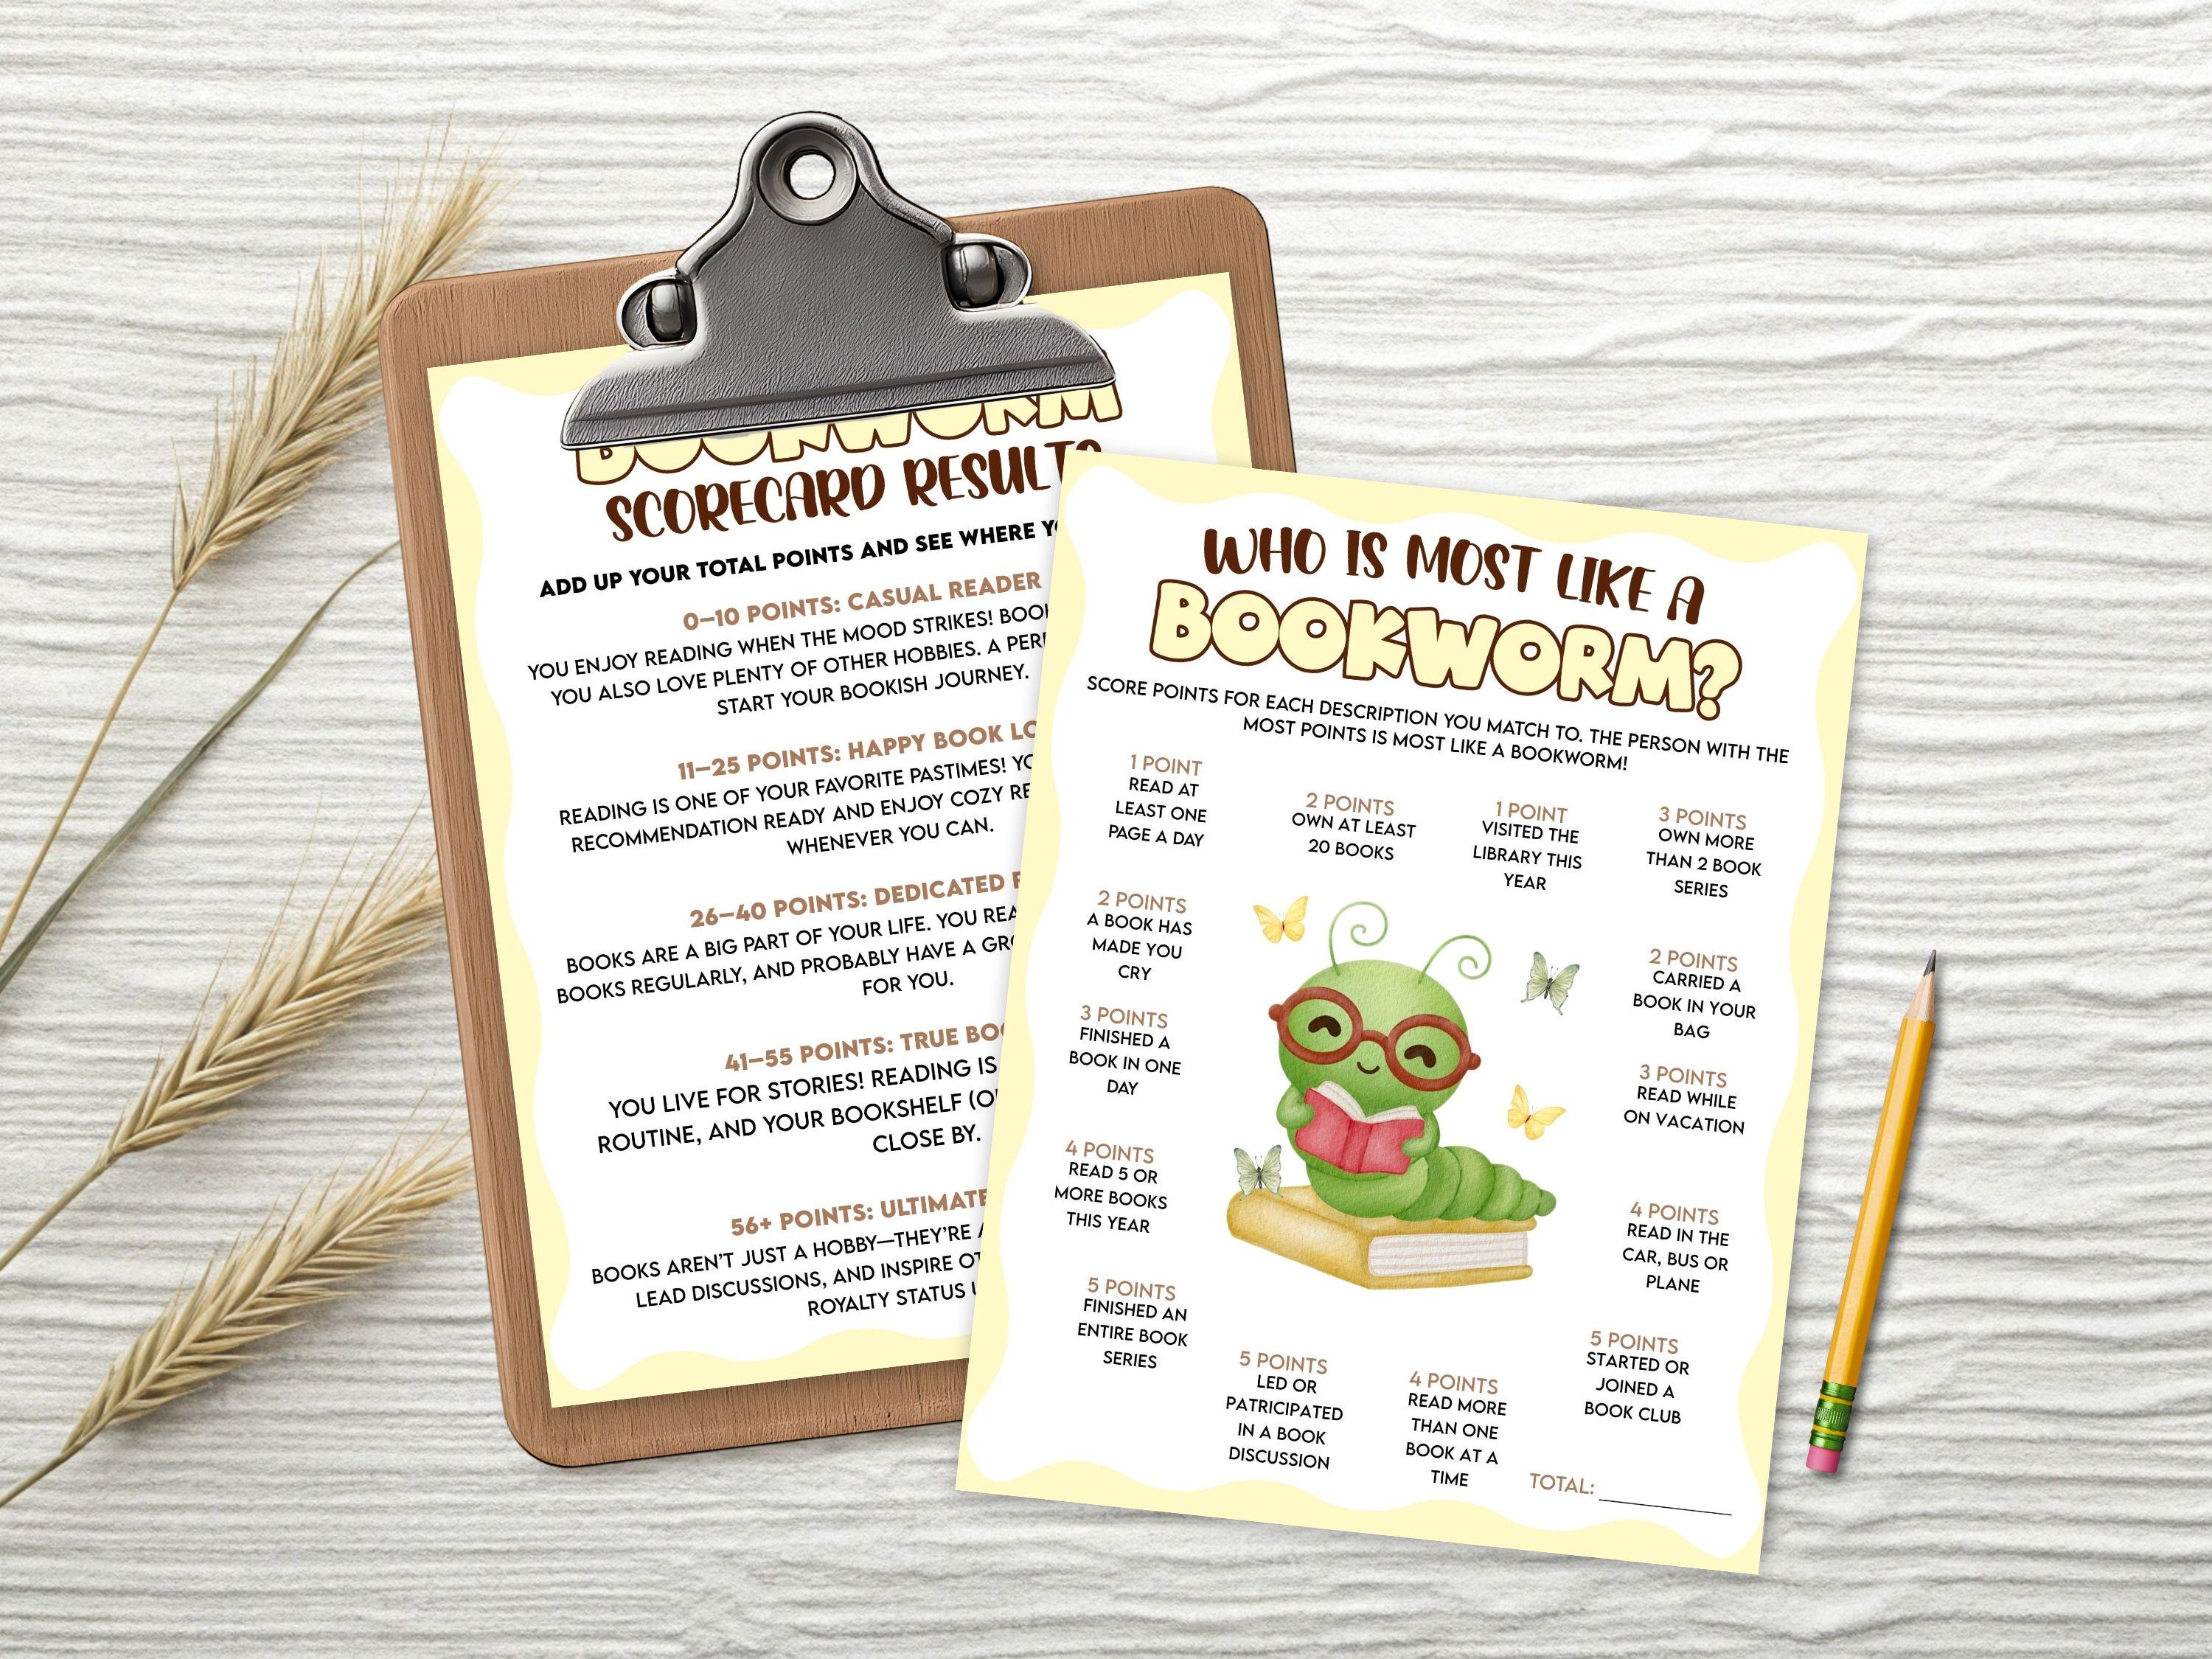 BOOKWORM
SCORECARD RESULTS
ADD UP YOUR TOTAL POINTS AND SEE WHERE
0–10 POINTS: CASUAL READER
YOU ENJOY READING WHEN THE MOOD STRIKES!
YOU ALSO LOVE PLENTY OF OTHER HOBBIES. A
START YOUR BOOKISH JOURNEY.
11–25 POINTS: HAPPY BOOK
READING IS ONE OF YOUR FAVORITE PASTIMES!
RECOMMENDATION READY AND ENJOY COZY
WHENEVER YOU CAN.
26–40 POINTS: DEDICATED
BOOKS ARE A BIG PART OF YOUR LIFE. YOU
BOOKS REGULARLY, AND PROBABLY HAVE A
FOR YOU.
41–55 POINTS: TRUE
YOU LIVE FOR STORIES! READING IS
ROUTINE, AND YOUR BOOKSHELF
CLOSE BY.
56+ POINTS: ULTIMATE
BOOKS AREN'T JUST A HOBBY—THEY'RE
LEAD DISCUSSIONS, AND INSPIRE
ROYALTY STATUS
WHO IS MOST LIKE A
BOOKWORM?
SCORE POINTS FOR EACH DESCRIPTION YOU MATCH TO. THE PERSON WITH THE
MOST POINTS IS MOST LIKE A BOOKWORM!
1 POINT
READ AT
LEAST ONE
PAGE A DAY
2 POINTS
OWN AT LEAST
20 BOOKS
1 POINT
VISITED THE
LIBRARY THIS
YEAR
3 POINTS
OWN MORE
THAN 2 BOOK
SERIES
2 POINTS
A BOOK HAS
MADE YOU
CRY
2 POINTS
CARRIED A
BOOK IN YOUR
BAG
3 POINTS
FINISHED A
BOOK IN ONE
DAY
3 POINTS
READ WHILE
ON VACATION
4 POINTS
READ 5 OR
MORE BOOKS
THIS YEAR
4 POINTS
READ IN THE
CAR, BUS OR
PLANE
5 POINTS
FINISHED AN
ENTIRE BOOK
SERIES
5 POINTS
LED OR
PATRICIPATED
IN A BOOK
DISCUSSION
4 POINTS
READ MORE
THAN ONE
BOOK AT A
TIME
5 POINTS
STARTED OR
JOINED A
BOOK CLUB
TOTAL: